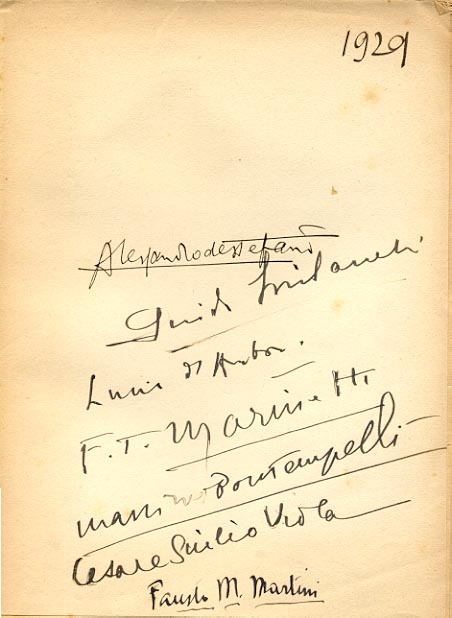 1929
Alessandro de Stefani
Guido
Lucio d'Ambra.
F. T. Marinetti
Massimo Bontempelli
Cesare Giulio Viola
Fausto M. Martini